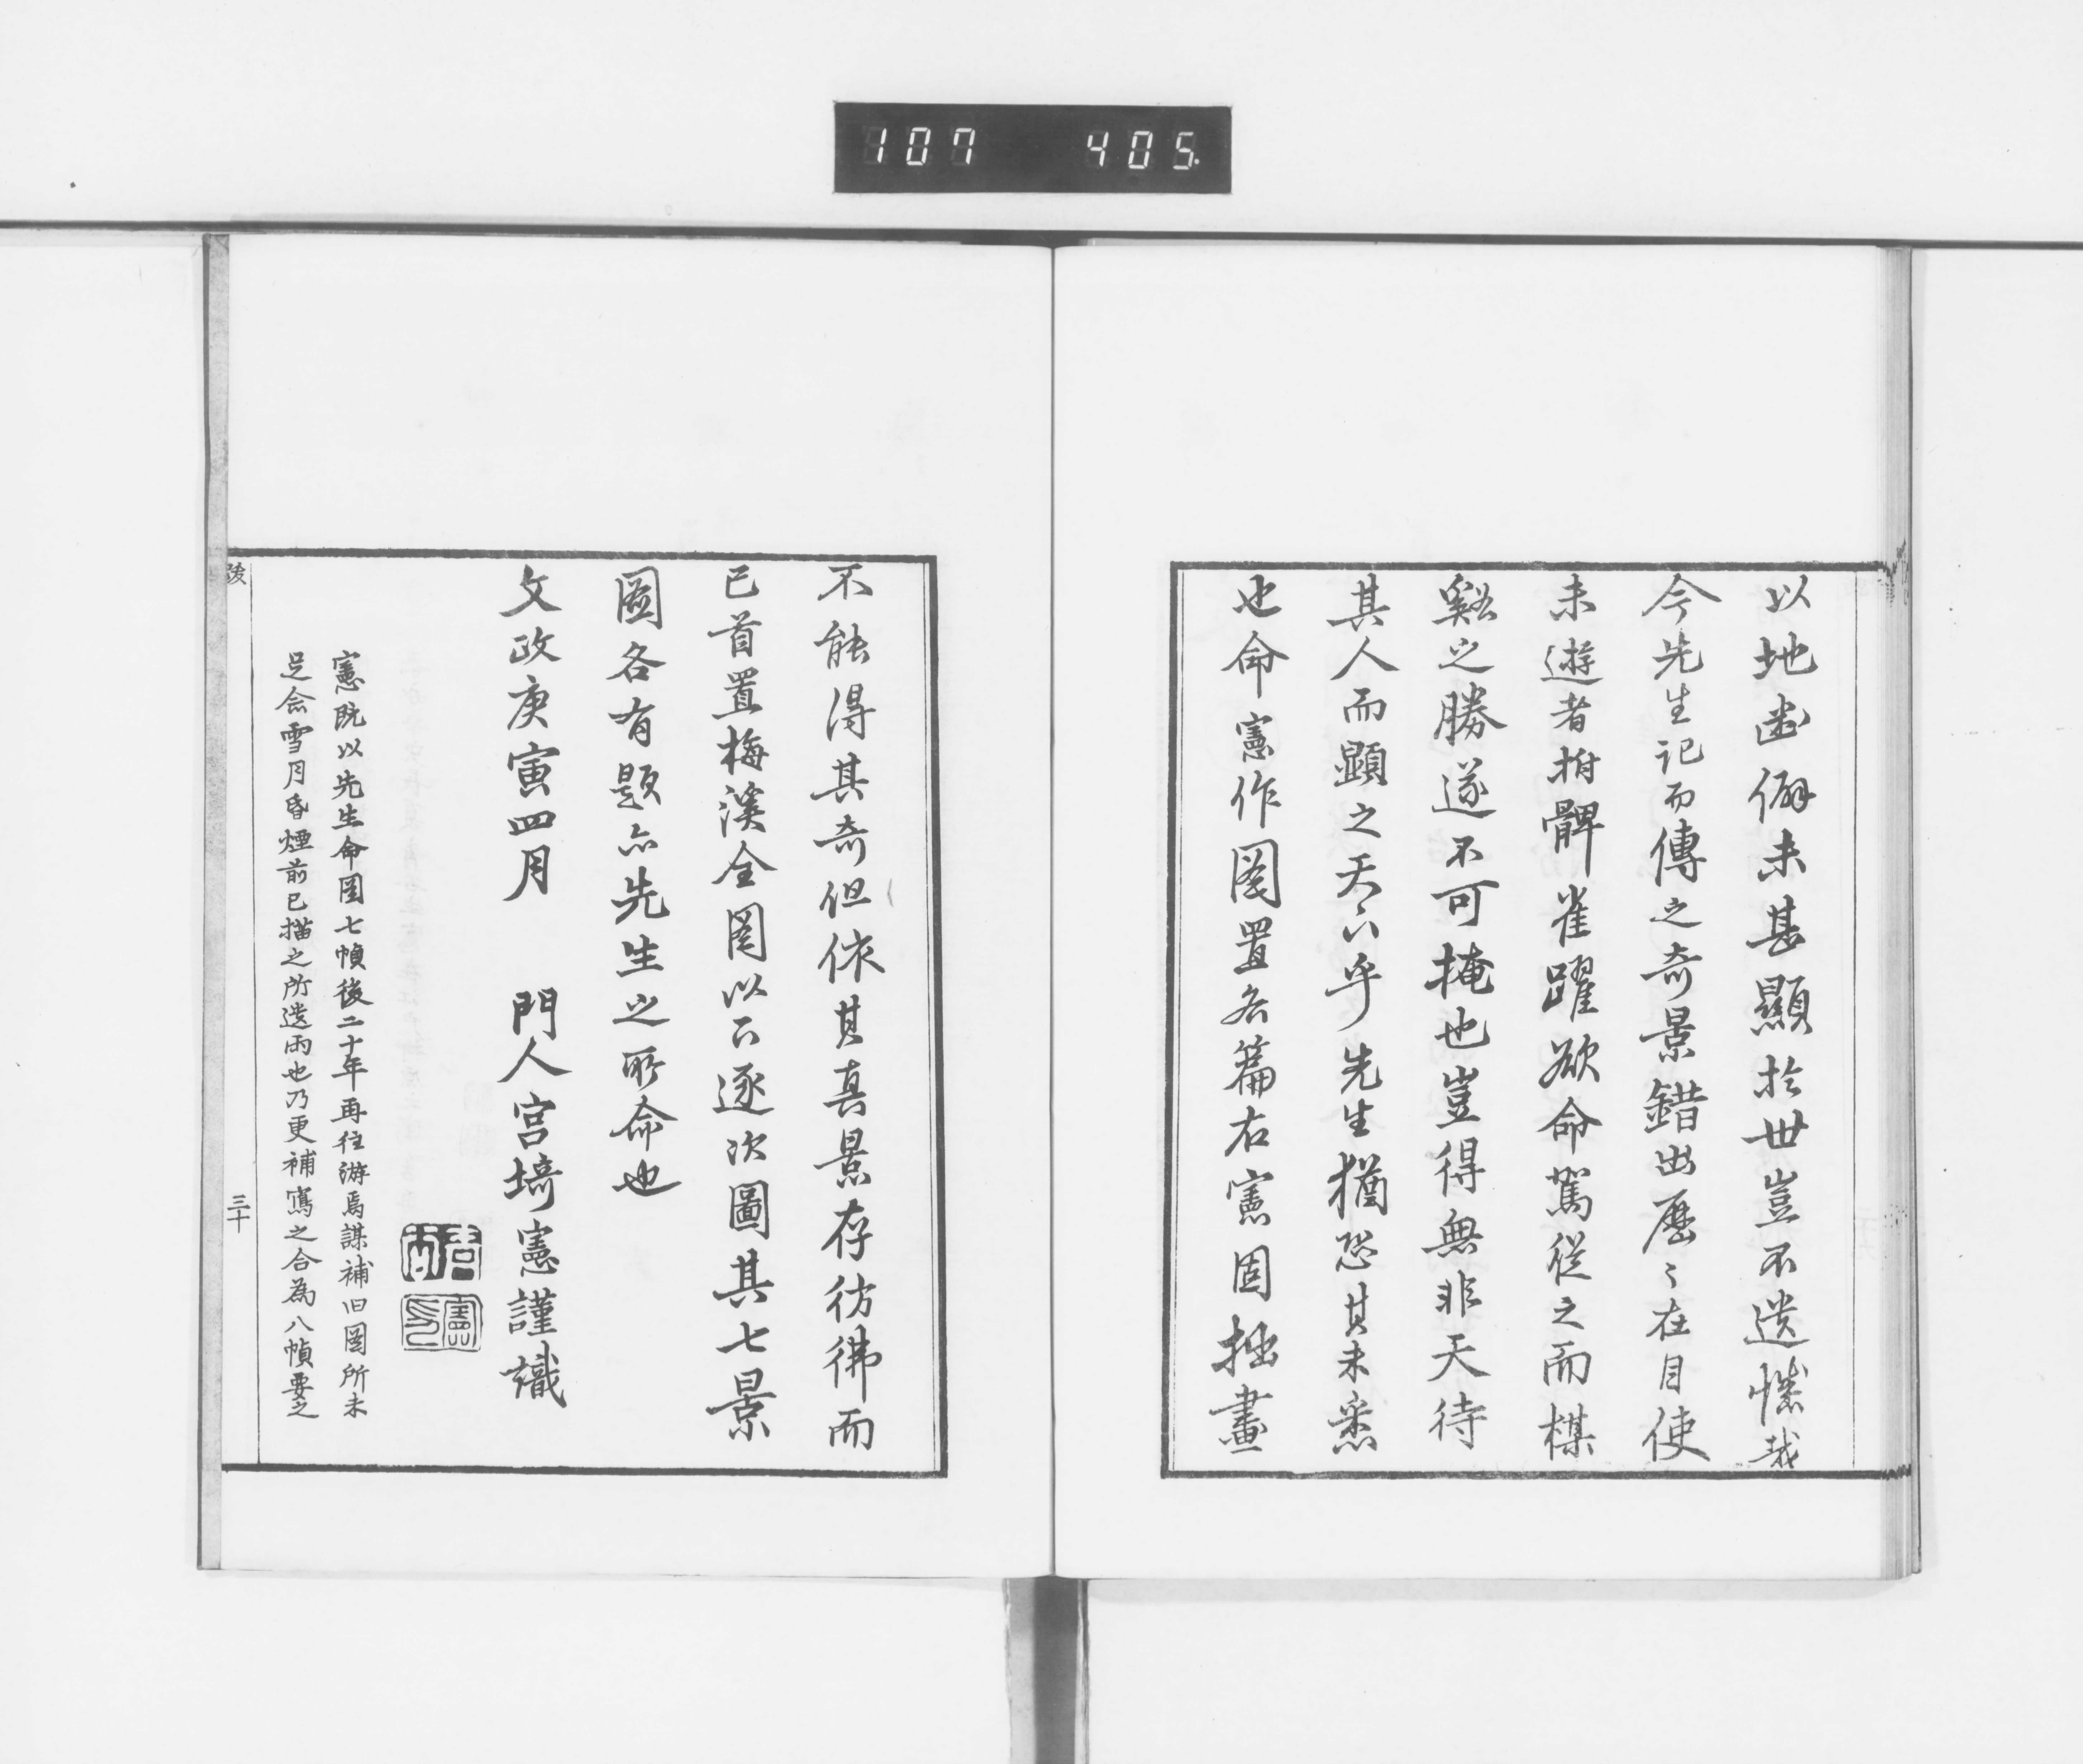 107 405
以地幽僻未甚顯於世豈不遺憾哉
今先生記而傳之奇景錯出歴〻在目使
未遊者拊髀雀躍欲命駕從之而楳
谿之勝遂不可掩也豈得無非天待
其人而顯之天下乎先生猶恐其未悉
也命憲作圖置各篇右憲固拙畫
不能得其奇但依其真景存彷彿而
已首置梅溪全圖以下逐次圖其七景
圖各有題亦先生之所命也
文政庚寅四月 門人宮埼憲謹識
憲既以先生命圖七幀後二十年再往游焉謀補旧圖所未
足会雪月昏煙前已描之所遺雨也乃更補寫之合為八幀要之
跋
三十